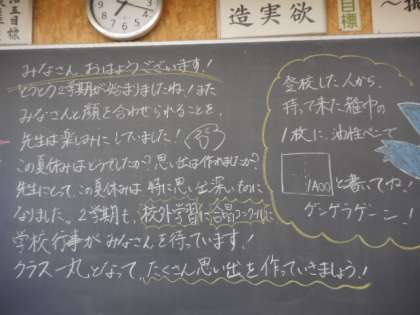 造実欲
目標
みなさん、おはようございます！
とうとう2学期が始まりましたね！また
みなさんと顔を合わせられることを、
先生は楽しみにしていました！
この夏休みはどうでしたか？思い出は作れましたか？
先生にとって、この夏休みは特に思い出深いものに
なりました。2学期も、校外学習に合唱コンクールに
学校行事がみなさんを待っています！
クラス一丸となって、たくさん思い出を作っていきましょう！
登校した人から、
持って来た雑巾の
1枚に、油性ペンで
1A00 と書いてね。
ゲンケラゲーン！